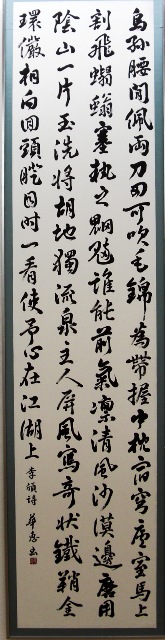 烏孫腰間佩兩刀刃可吹毛錦為帶握中枕宿穹廬室馬上
割飛蠮螉塞執之魍魎誰能前氣凜清風沙漠邊磨用
陰山一片玉洗將胡地獨流泉主人屏風寫奇狀鐵鞘金
環儼相向回頭瞪目时一看使予心在江湖上 李頎詩